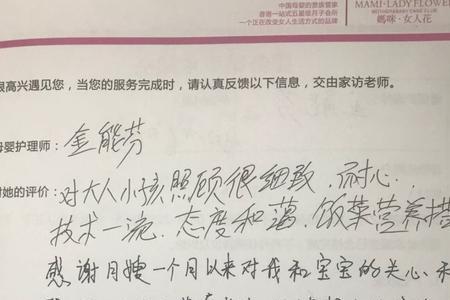 中国母婴的贵族管家
香港一站式五星级月子会所
一个正在改变女人生活方式的品牌
MAMI·LADY FLOWER
MOTHERBABY CARE CLUB
媽咪·女人花
很高兴遇见您，当您的服务完成时，请认真反馈以下信息，交由家访老师。
母婴护理师：金能芬
对她的评价：对大人小孩照顾很细致，耐心，
技术一流，态度和蔼，饭菜营养搭
感谢月嫂一个月以来对我和宝宝的关心和